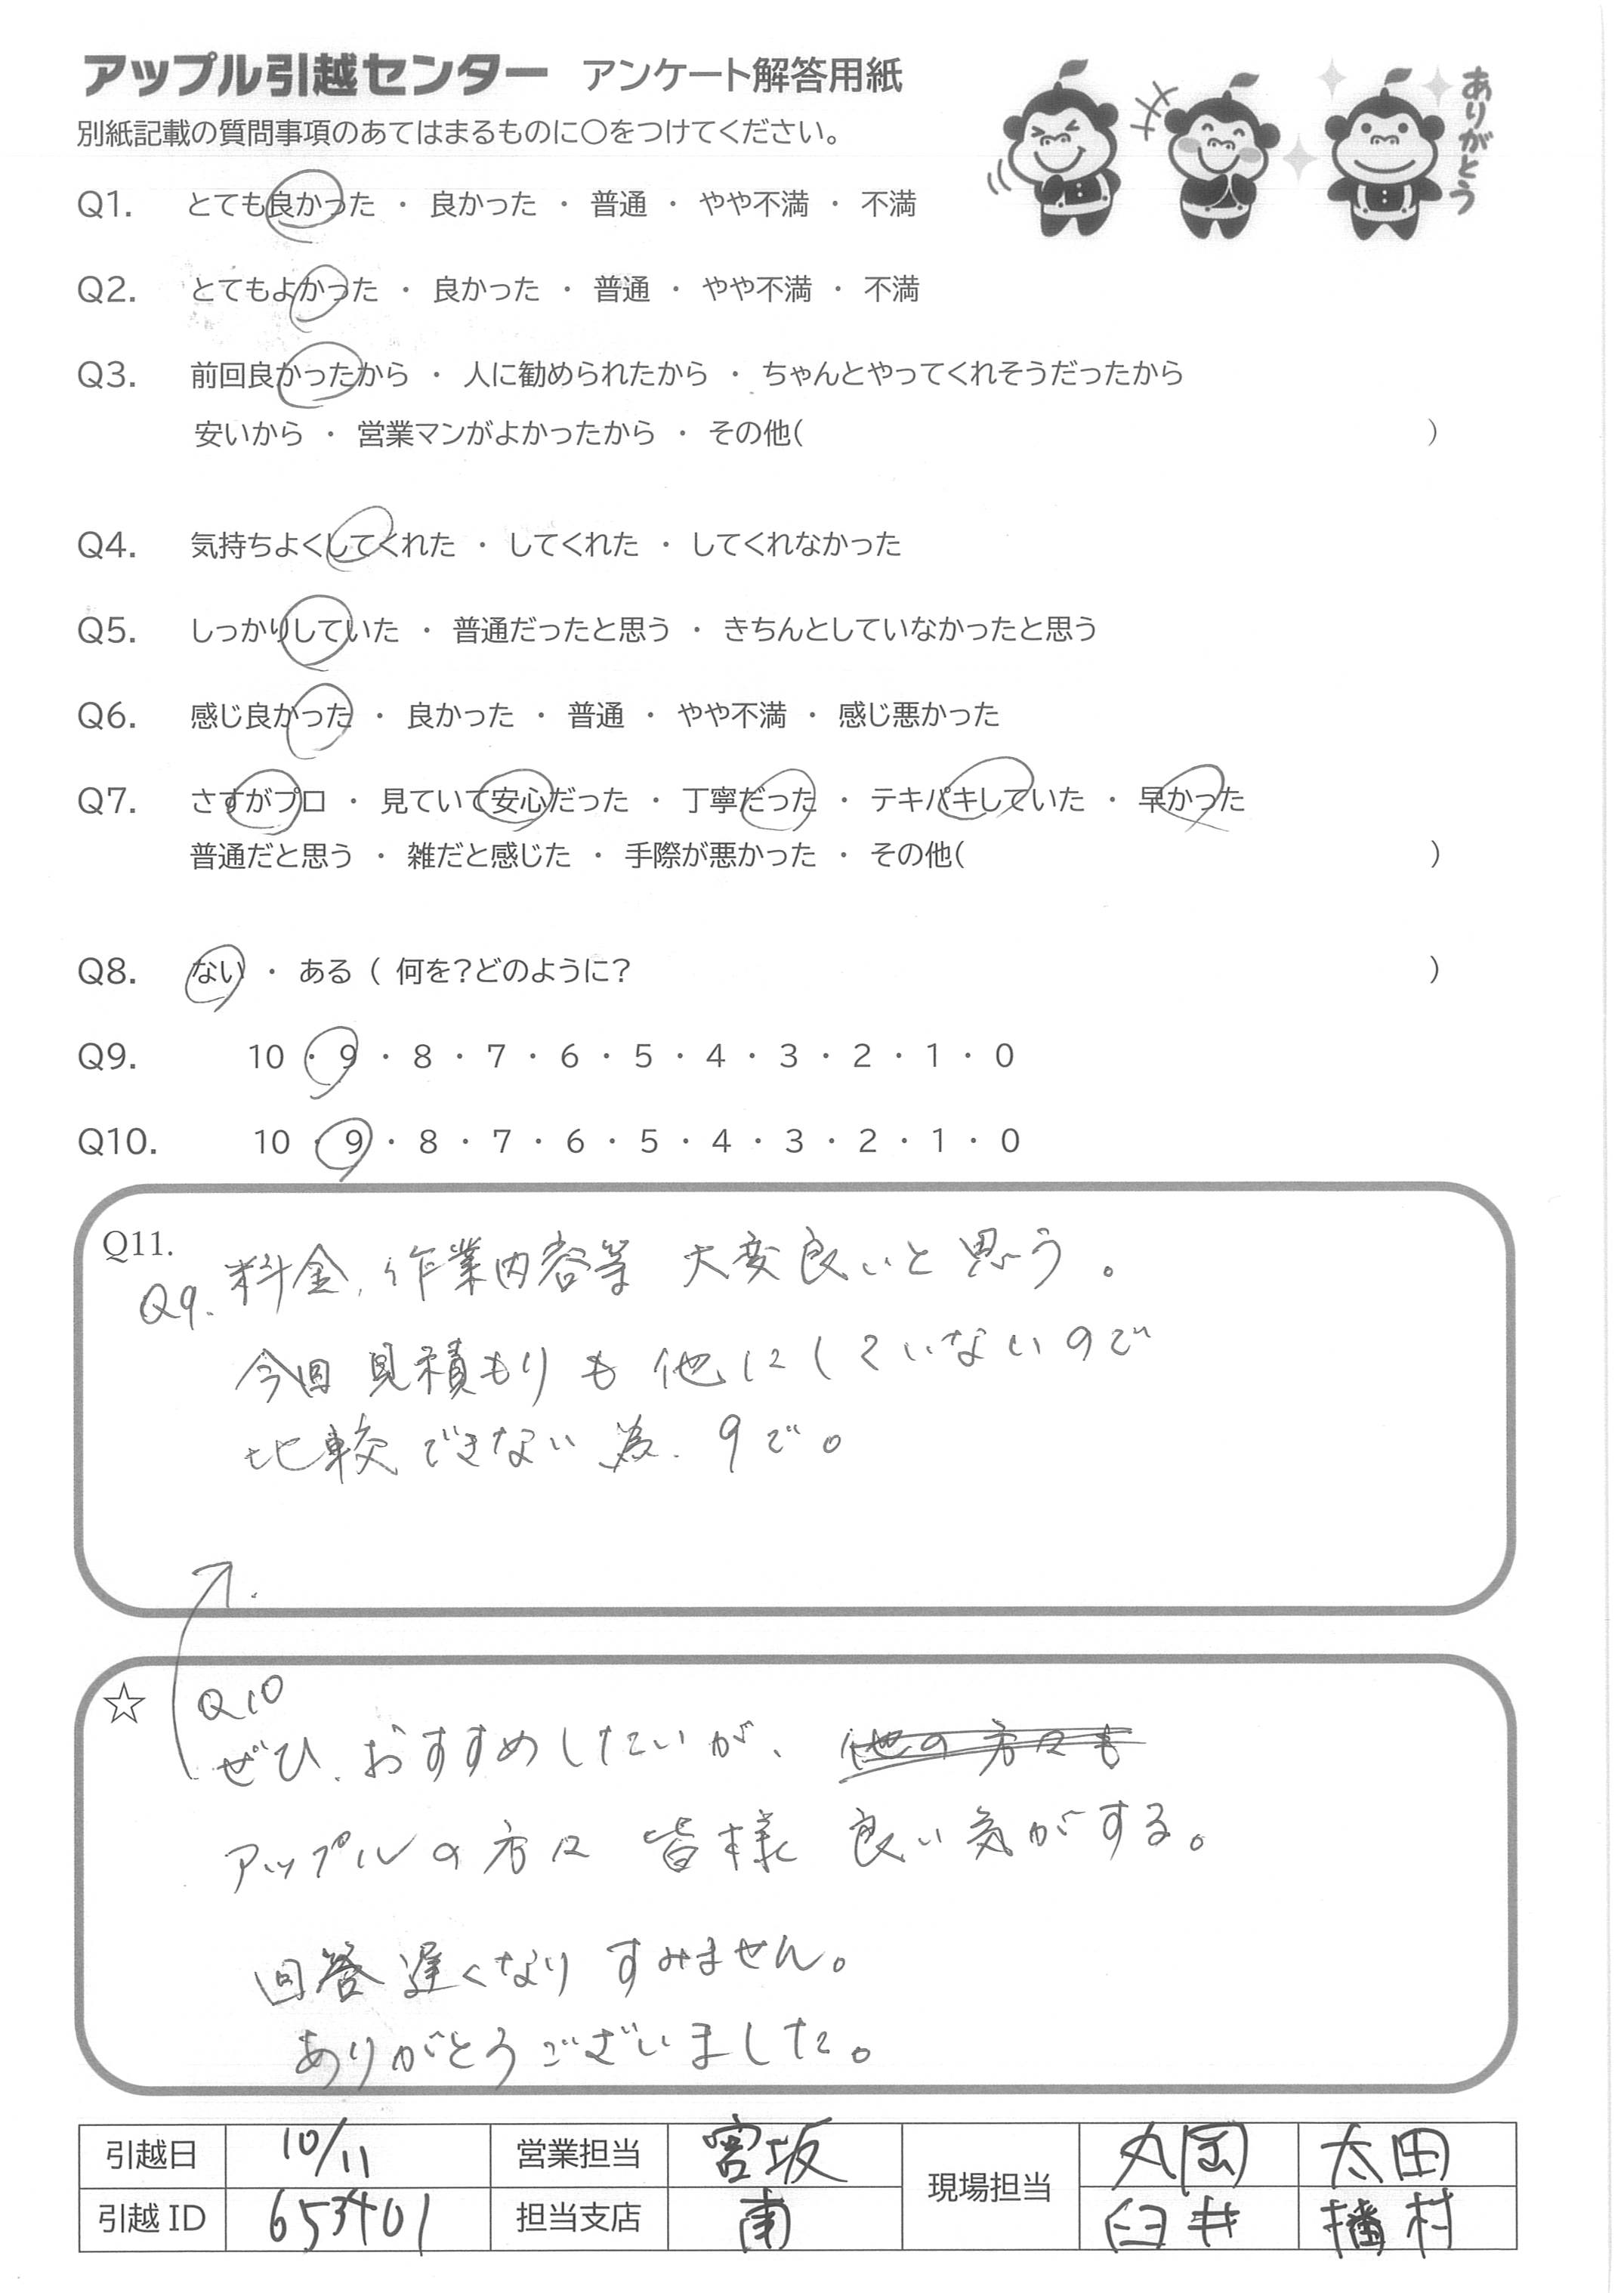 アップル引越センター アンケート解答用紙
別紙記載の質問事項のあてはまるものに〇をつけてください。
ありがとう
Q1. とても良かった ・ 良かった ・ 普通 ・ やや不満 ・ 不満
Q2. とてもよかった ・ 良かった ・ 普通 ・ やや不満 ・ 不満
Q3. 前回良かったから ・ 人に勧められたから ・ ちゃんとやってくれそうだったから
安いから ・ 営業マンがよかったから ・ その他( )
Q4. 気持ちよくしてくれた ・ してくれた ・ してくれなかった
Q5. しっかりしていた ・ 普通だったと思う ・ きちんとしていなかったと思う
Q6. 感じ良かった ・ 良かった ・ 普通 ・ やや不満 ・ 感じ悪かった
Q7. さすがプロ ・ 見ていて安心だった ・ 丁寧だった ・ テキパキしていた ・ 早かった
普通だと思う ・ 雑だと感じた ・ 手際が悪かった ・ その他( )
Q8. ない ・ ある ( 何を?どのように? )
Q9. 10 ・ 9 ・ 8 ・ 7 ・ 6 ・ 5 ・ 4 ・ 3 ・ 2 ・ 1 ・ 0
Q10. 10 ・ 9 ・ 8 ・ 7 ・ 6 ・ 5 ・ 4 ・ 3 ・ 2 ・ 1 ・ 0
Q11.
Q9. 料金、作業内容等 大変良いと思う。
今回見積もりも他にしていないので
比較できない為、9で。
☆ Q10
ぜひ、おすすめしたいが、他の方々も
アップルの方々 皆様 良い気がする。
回答遅くなりすみません。
ありがとうございました。
引越日 10/11 営業担当 宮坂 現場担当 丸岡 太田
引越ID 653401 担当支店 南 臼井 播村